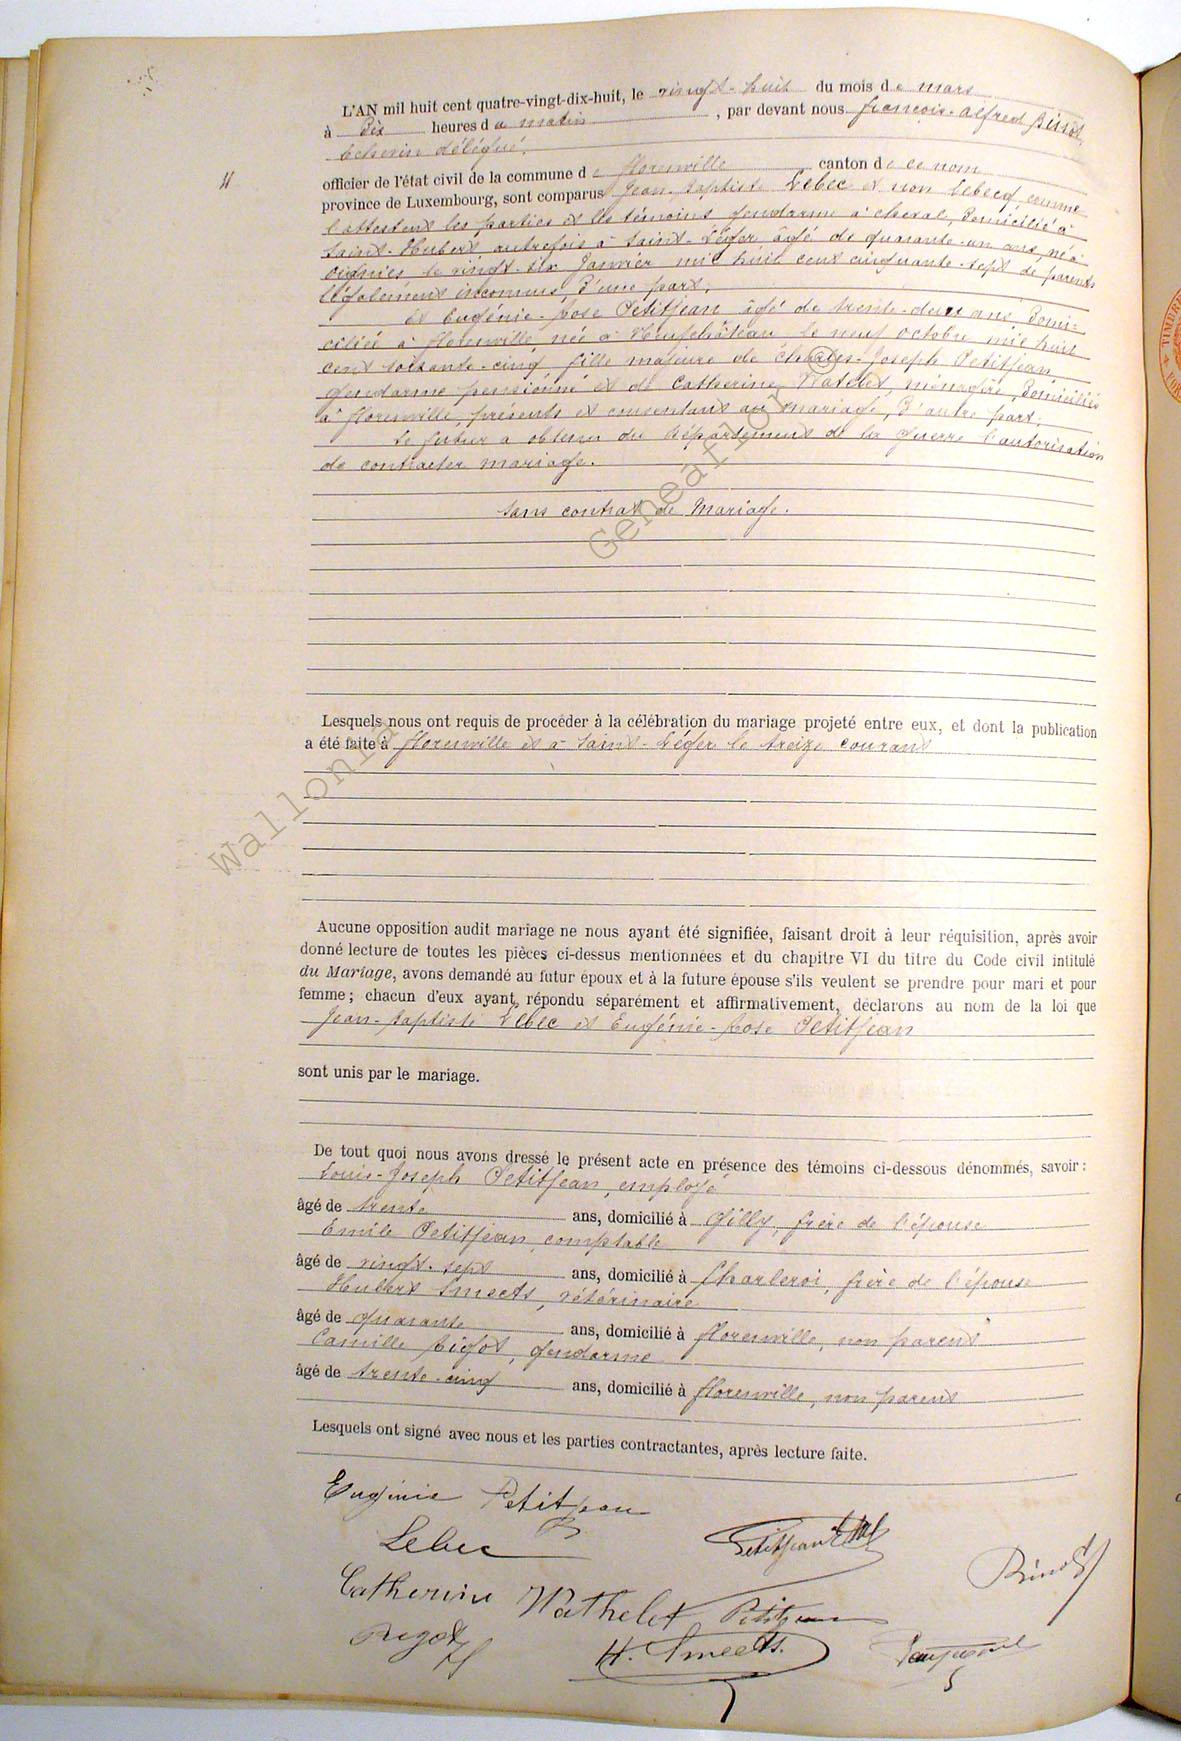 L'AN mil huit cent quatre-vingt-dix-huit, le vingt-huit du mois de mars
à dix heures du matin, par devant nous François-Alfred Binot,
Echevin délégué,
officier de l'état civil de la commune de Florenville canton de ce nom
province de Luxembourg, sont comparus Jean-Baptiste Lebec et non Lebecq, comme
l'attestent les parties et les témoins gendarme à cheval, domicilié à
Saint-Hubert autrefois à Saint-Léger âgé de quarante-un ans, né à
Oignies le vingt-six Janvier mil huit cent cinquante-sept de parents
légalement inconnus, d'une part;
Et Eugénie-Rose Petitjean âgé de trente-deux ans domi-
ciliée à Florenville, née à Neufchâteau le neuf octobre mil huit
cent soixante-cinq, fille majeure de Charles-Joseph Petitjean
gendarme pensionné et de Catherine Watelet, ménagère, domiciliés
à Florenville, présents et consentant au mariage, d'autre part;
Le futur a obtenu du Département de la guerre l'autorisation
de contracter mariage.
Sans contrat de Mariage.
Lesquels nous ont requis de procéder à la célébration du mariage projeté entre eux, et dont la publication
a été faite à Florenville et à Saint-Léger le treize courant
Aucune opposition audit mariage ne nous ayant été signifiée, faisant droit à leur réquisition, après avoir
donné lecture de toutes les pièces ci-dessus mentionnées et du chapitre VI du titre du Code civil intitulé
du Mariage, avons demandé au futur époux et à la future épouse s'ils veulent se prendre pour mari et pour
femme; chacun d'eux ayant répondu séparément et affirmativement, déclarons au nom de la loi que
Jean-Baptiste Lebec et Eugénie-Rose Petitjean
sont unis par le mariage.
De tout quoi nous avons dressé le présent acte en présence des témoins ci-dessous dénommés, savoir:
Louis-Joseph Petitjean, employé
âgé de trente ans, domicilié à Gilly, frère de l'épouse
Emile Petitjean, comptable
âgé de vingt-sept ans, domicilié à Charleroi, frère de l'épouse
Hubert Smeets, vétérinaire
âgé de quarante ans, domicilié à Florenville, non parent
Camille Rigot, gendarme
âgé de trente-cinq ans, domicilié à Florenville, non parent
Lesquels ont signé avec nous et les parties contractantes, après lecture faite.
Eugénie Petitjean
Lebec
Petitjean
Binot
Catherine Wathelet Petitjean
Rigot
H. Smeets.
Wallonia Geneaflor ©
TIMBRE